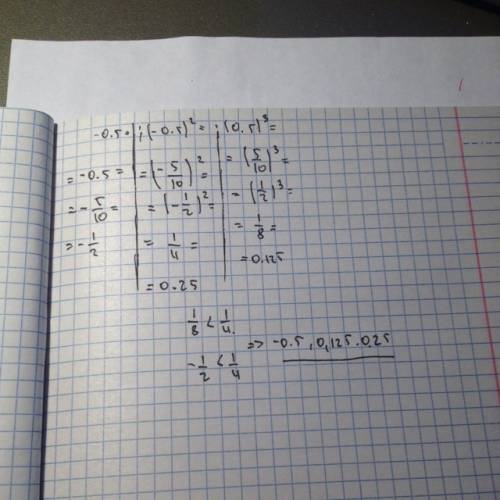 -0.5= ; (-0.5)² = ; (0.5)³ =
= -0.5 = | = (-5/10)² = | = (5/10)³ =
= -5/10 = | = (-1/2)² = | = (1/2)³ =
= -1/2 | = 1/4 = | = 1/8 =
= 0.25 | = 0.125
1/8 < 1/4.
-1/2 < 1/4 => -0.5, 0,125.0.25